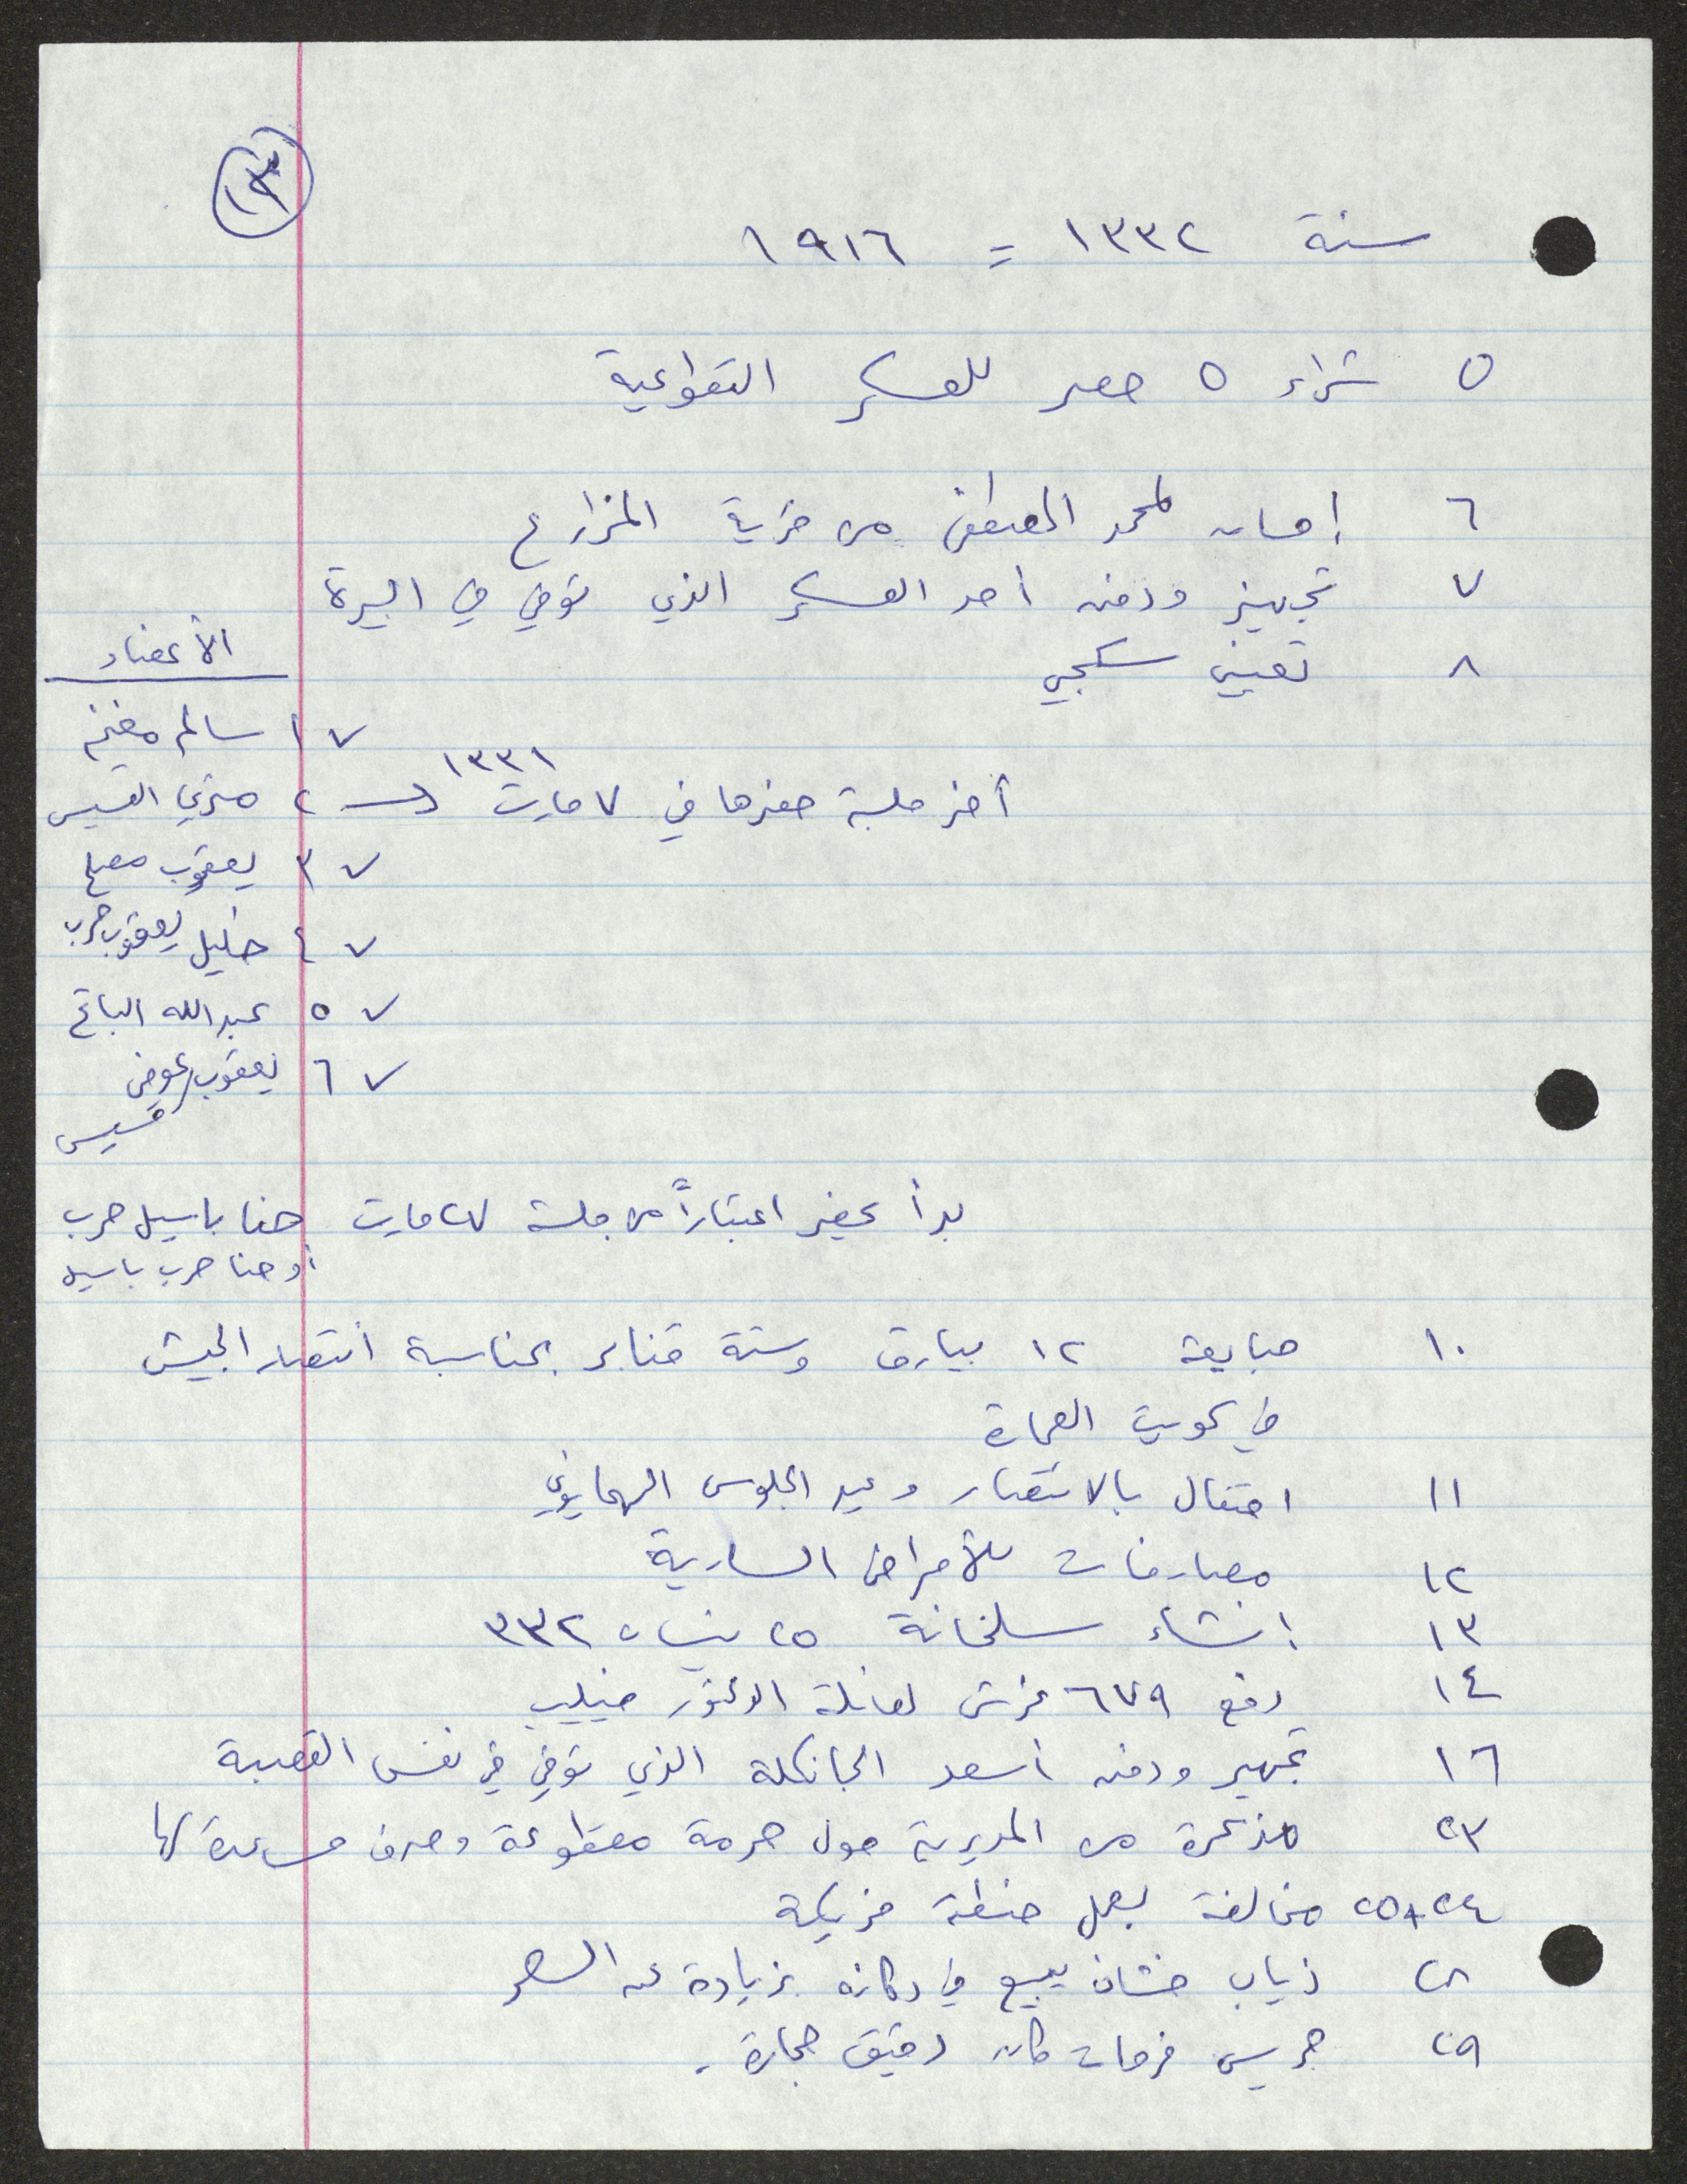 ١٣
سنة ١٣٣٢ = ١٩١٦
٥ شراء ٥ حصر للعسكر التطوعية
٦ إحسان لمحمد المصطفى من قرية المزارع
٧ تجهيز ودفن أحد العسكر الذي توفي في البيرة
٨ تعيين سكجي
الأعضاء
١ سالم مغنم
آخر جلسة حضرها في ٧ مارت ١٣٣١
٢ متري القسيس
٣ يعقوب مصلح
٤ خليل يعقوب حرب
٥ عبدالله الباتح
٦ يعقوب عوض
قسيس
بدأ يحضر اعتباراً من جلسة ٢٧ مارت حنا باسيل حرب
أو حنا حرب باسيل
١٠ مبايعة ١٢ بيارق وستة قنابر بمناسبة انتصار الجيش
في كويت العمارة
١١ احتفال بالانتصار وعيد الجلوس الهمايوني
١٢ مصارفات للأمراض السارية
١٣ إنشاء سلخانة ٢٥ نيسان ٣٣٢
١٤ دفع ٦٧٩ غرش لعائلة الدكتور فيليب
١٦ تجهيز ودفن أسعد الجانكلة الذي توفي في نفس القصبة
٢٣ مذكرة من المديرية حول حرمة مقطوعة وصرف مساعدة لها
٢٤+٢٥ مخالفة بعمل حنطة فريكة
٢٨ ذياب خشان يبيع في دكانه بزيادة عن السعر
٢٩ جريس فرحات كان دقيق حجارة.